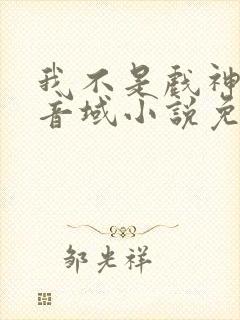 我不是戏神
音域小說免
邹光祥